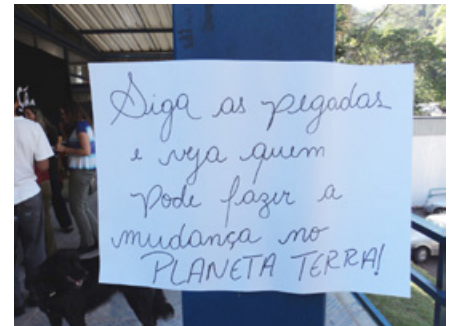 Siga as pegadas
e veja quem
Pode fazer a
mudança no
PLANETA TERRA!